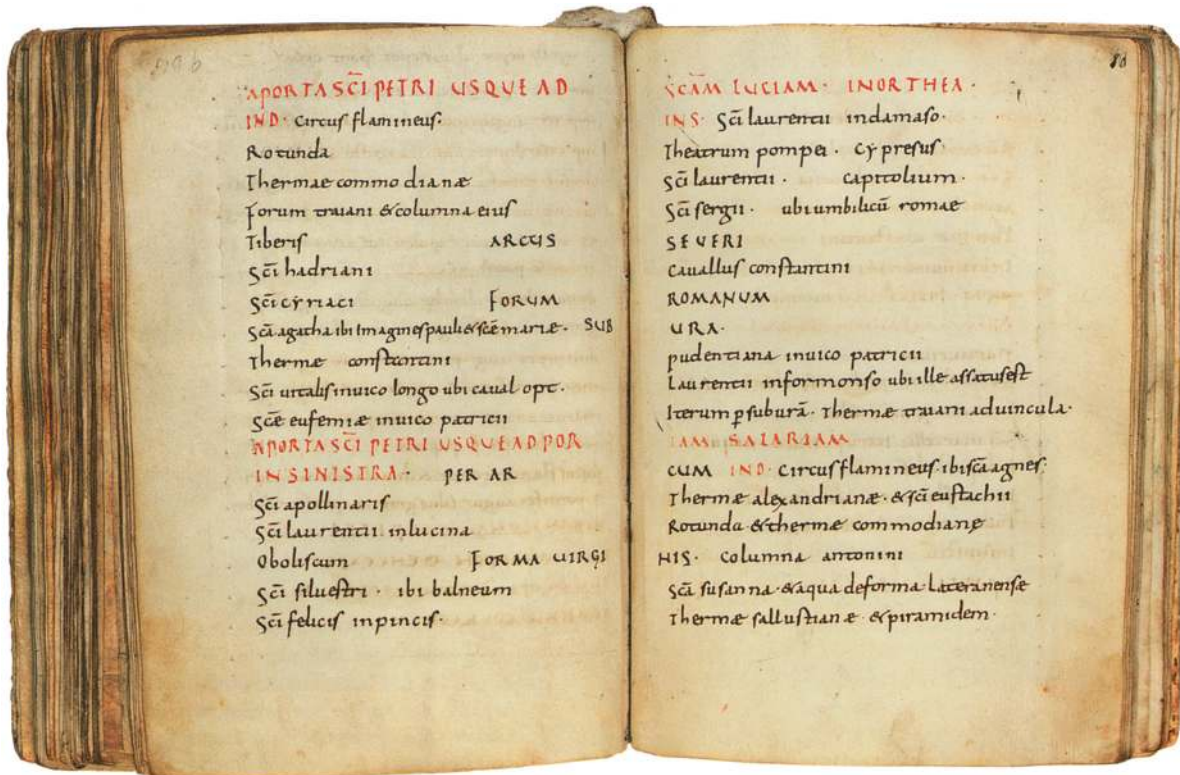 APORTA SC̄I PETRI USQUE AD
IND· Circus flamineus·
Rotunda
Thermae commodianæ
Forum traiani & columna eius
Tiberis ARCUS
Sc̄i hadriani
Sc̄i cyriaci FORUM
Sc̄a agatha ibi Imagines pauli & sc̄e mariæ· SUB
Thermæ constantini
Sc̄i uitalis inuico longo ubi caual opt·
Sc̄e eufemiæ inuico patricii
APORTA SC̄I PETRI USQUE AD POR
IN SINISTRA· PER AR
Sc̄i apollinaris
Sc̄i laurentii inlucina
Oboliscum FORMA UIRGI
Sc̄i silvestri· ibi balneum
Sc̄i felicis inpincis·
80
SC̄AM LUCIAM· INORTHEA·
INS· Sc̄i laurentii indamaso·
Theatrum pompei· Cypresus·
Sc̄i laurentii· capitolium·
Sc̄i sergii· ubi umbilicū romae
SEUERI
Cauallus constantini
ROMANUM
URA·
pudentiana inuico patricii
Laurentii informonso ubi ille assatus est
Iterum p̱ suburā· Thermæ traiani aduincula·
TAM SALARIAM
CUM IND· Circus flamineus· ibi sc̄a agnes·
Thermæ alexandrianæ· & sc̄i eustachii
Rotunda & thermæ commodianę
NIS· Columna antonini
Sc̄a susanna· & aqua deforma lateranense
Thermæ sallustianæ· & piramidem·